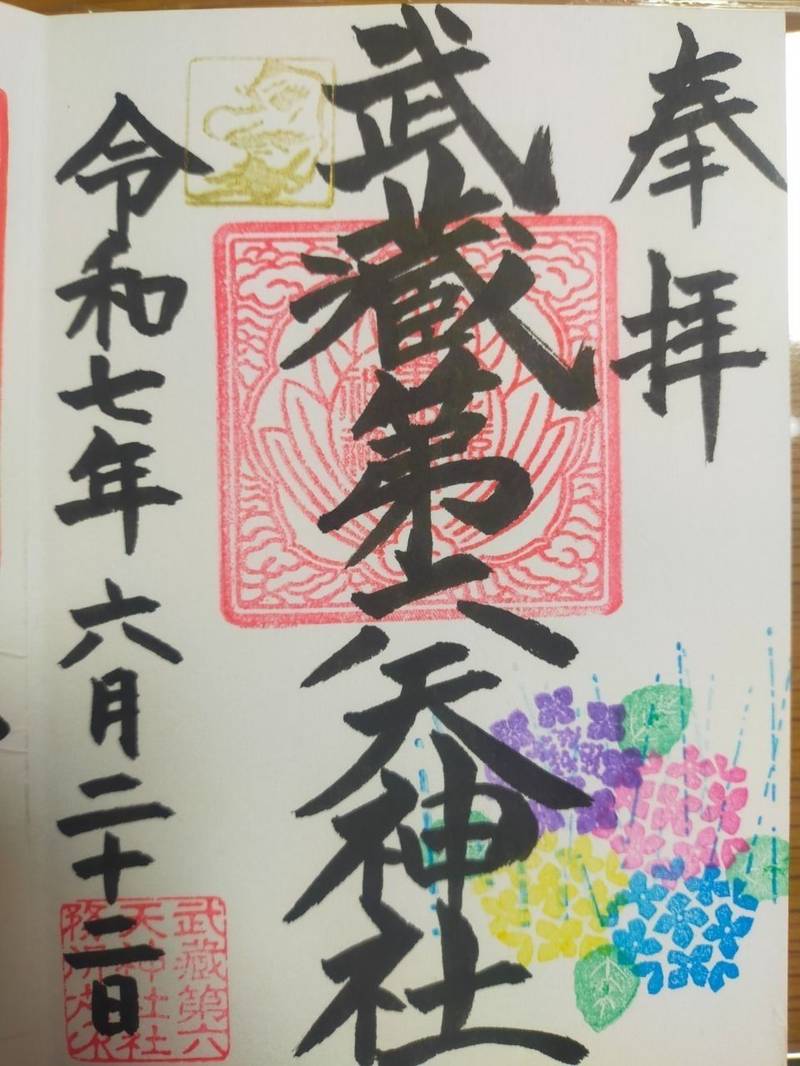 奉拝
武蔵第六天神社
令和七年六月二十二日
武蔵第六
天神社社
務所之印